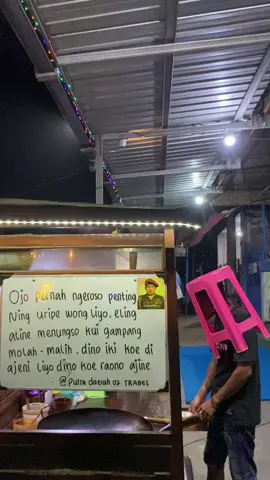 Ojo pernah ngeroso penting
Ning uripe wong liyo. Eling
atine menungso kui gampang
molah-malih. dino iki koe di
ajeni liyo dino koe raono ajine
@Putra daerah 02 TRABES